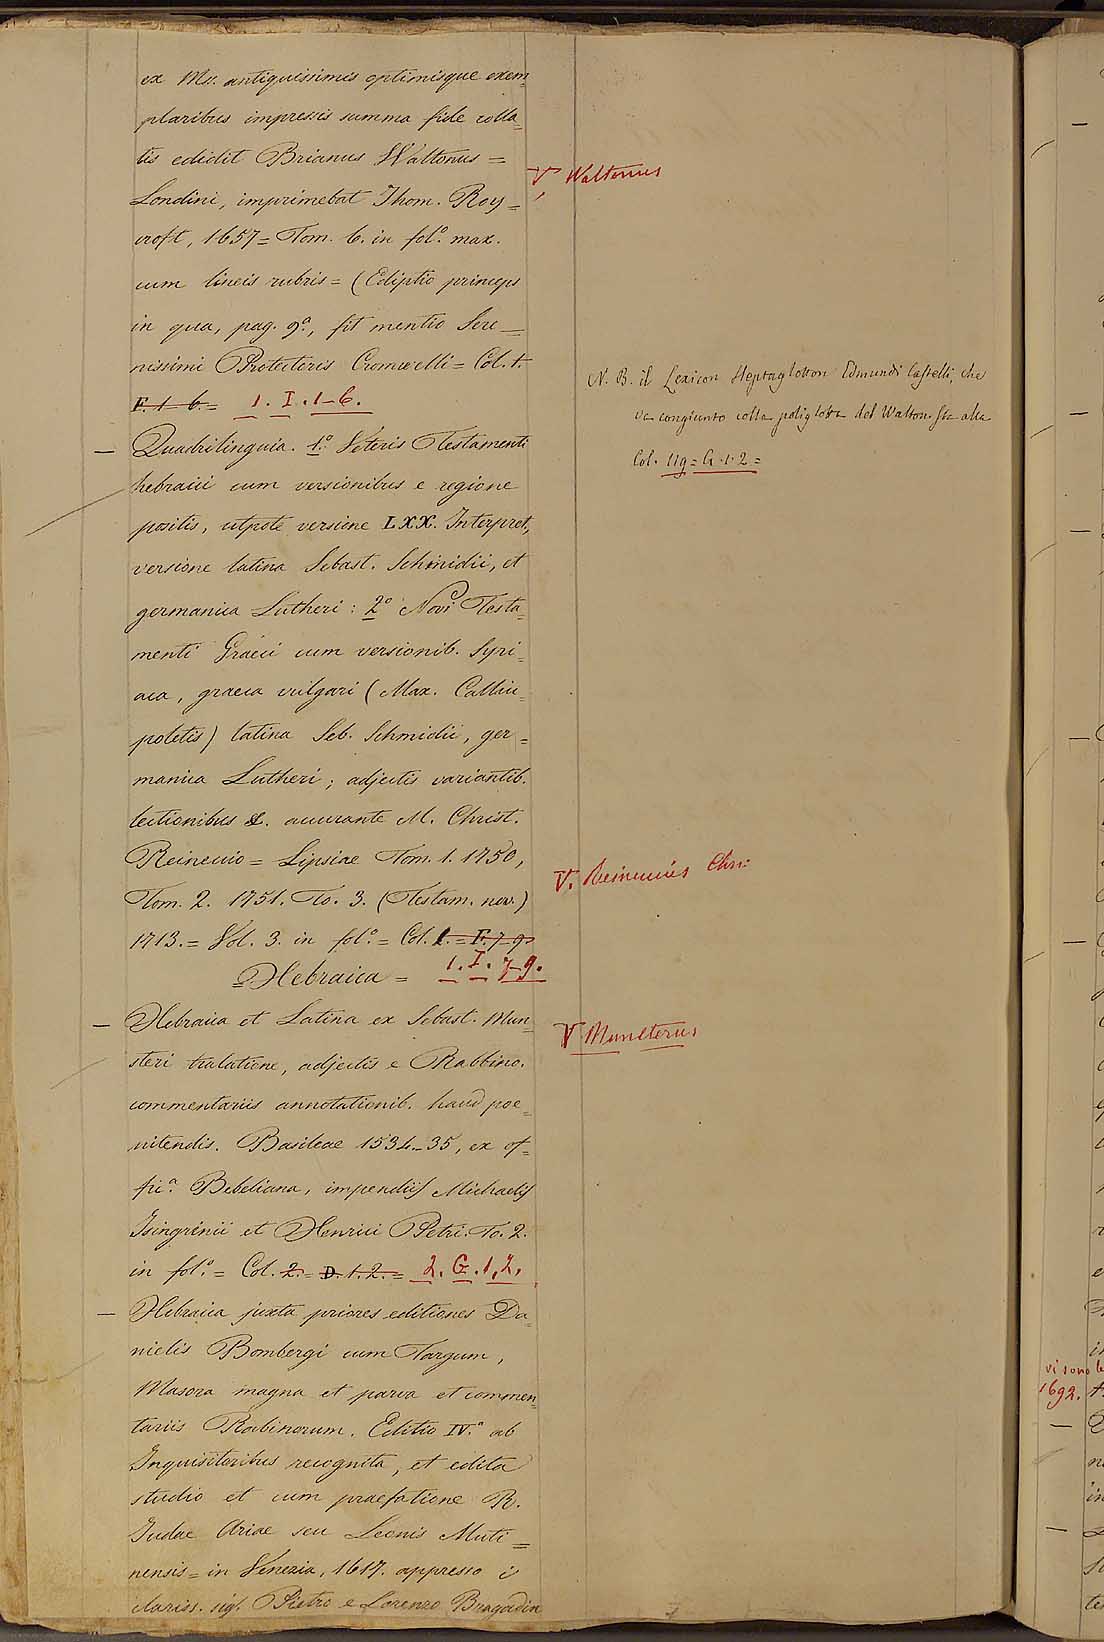 ex Ms. antiquissimis optimisque exem=
plaribus impressis summa fide colla=
tis edidit Brianus Waltonus =
V, Waltonus
Londini, imprimebat Thom. Roy=
croft, 1657 = Tom. 6. in fol.º max.
cum lineis rubris = (Ediptio princeps
in qua, pag. 9.ª, fit mentio Sere=
nissimi Protectoris Cromwelli = Col. 1.
F. 1-6. = 1. I. 1-6.
N. B. il Lexicon Heptaglotton Edmundi Castelli, che
va congiunto colla poliglotta del Walton. sta alla
Col. 119 = G. 1. 2 =
— Quadrilinguia. 1.º Veteris Testamenti
hebraici cum versionibus e regione
positis, utpote versione LXX. Interpret,
versione latina Sebast. Schmidii, et
germanica Lutheri: 2º Novi Testa=
menti Graeci cum versionib. Syri=
aca, graeca vulgari (Max. Calliu=
poletis) latina Seb. Schmidii, ger=
manica Lutheri; adjectis variantib.
lectionibus &. accurante M. Christ.
Reineccio = Lipsiae Tom. 1. 1750,
V. Reineccius Chri:
Tom. 2. 1751. To. 3. (Testam. nov.)
1713. = Vol. 3. in fol.º = Col. 1. = F. 7-9
1. I. 7-9.
Hebraica =
— Hebraica et Latina ex Sebast. Mun=
V Munsterus
steri tralatione, adjectis e Rabbino.
commentariis annotationib. haud poe=
nitendis. Basileae 1534-35, ex of=
fic.ª Bebeliana, impendiis Michaelis
Isingrinii et Henrici Petri. To. 2.
in fol.º = Col. 2. = D. 1. 2. = 2. G. 1, 2.
— Hebraica juxta priores editiones Da=
nielis Bombergi cum Targum,
Masora magna et parva et commen=
tariis Rabinorum. Editio IV.ª ab
Inquisitoribus recognita, et edita
studio et cum praefatione R.
Judae Ariae seu Leonis Muti=
nensis = in Venezia, 1617. appresso i
clariss. sig. Pietro e Lorenzo Bragadin
vi sono le
1692.